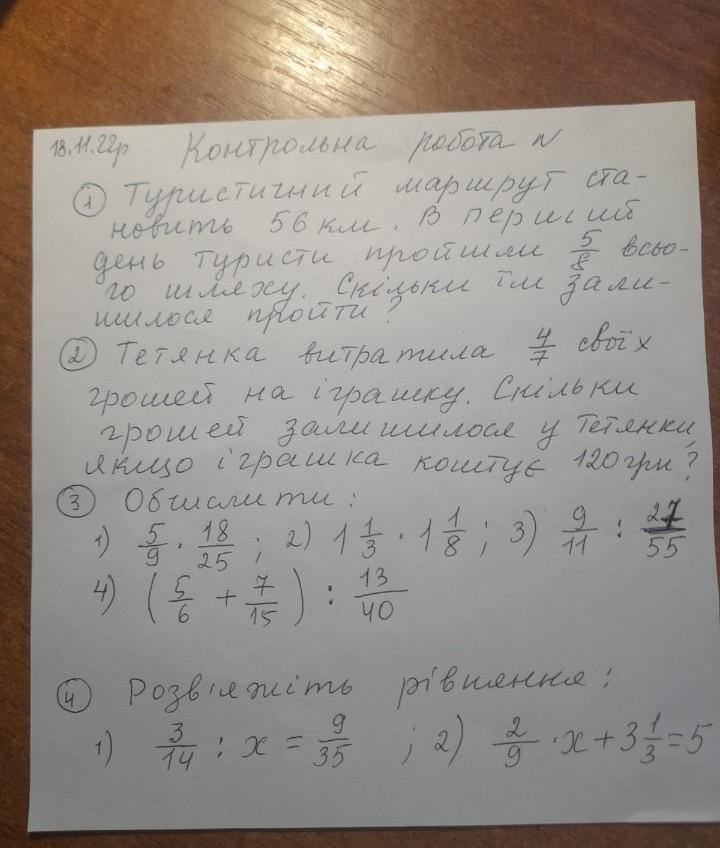 18.11.22р Контрольна робота N
① Туристичний маршрут ста-
новить 56 км. В перший
день туристи пройшли 5/8 всьо-
го шляху. Скільки їм зали-
шилося пройти?
② Тетянка витратила 4/7 своїх
грошей на іграшку. Скільки
грошей залишилося у Тетянки,
якщо іграшка коштує 120 грн?
③ Обчислити:
1) 5/9 · 18/25 ; 2) 1 1/3 · 1 1/8 ; 3) 9/11 : 27/55
4) (5/6 + 7/15) : 13/40
④ Розв'яжіть рівняння:
1) 3/14 : x = 9/35 ; 2) 2/9 · x + 3 1/3 = 5